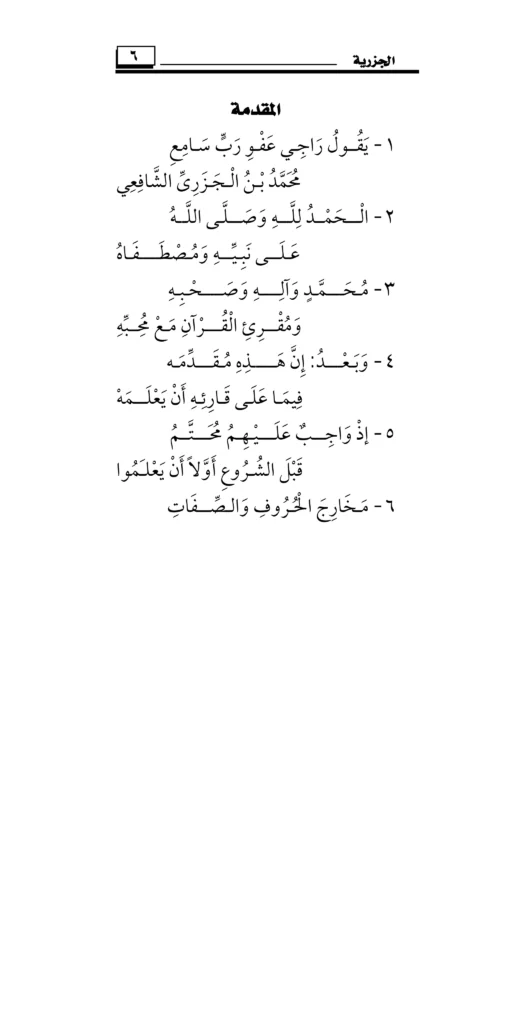 الجزرية ٦
المقدمة
١ - يَقُولُ رَاجِي عَفْوِ رَبٍّ سَامِعِ
مُحَمَّدُ بْنُ الْجَزَرِيِّ الشَّافِعِي
٢ - الْحَمْدُ لِلَّهِ وَصَلَّى اللَّهُ
عَلَى نَبِيِّهِ وَمُصْطَفَاهُ
٣ - مُحَمَّدٍ وَآلِهِ وَصَحْبِهِ
وَمُقْرِئِ الْقُرْآنِ مَعْ مُحِبِّهِ
٤ - وَبَعْدُ: إِنَّ هَذِهِ مُقَدِّمَه
فِيمَا عَلَى قَارِئِهِ أَنْ يَعْلَمَهْ
٥ - إذْ وَاجِبٌ عَلَيْهِمُ مُحَتَّمُ
قَبْلَ الشُرُوعِ أَوَّلاً أَنْ يَعْلَمُوا
٦ - مَخَارِجَ الْحُرُوفِ وَالصِّفَاتِ